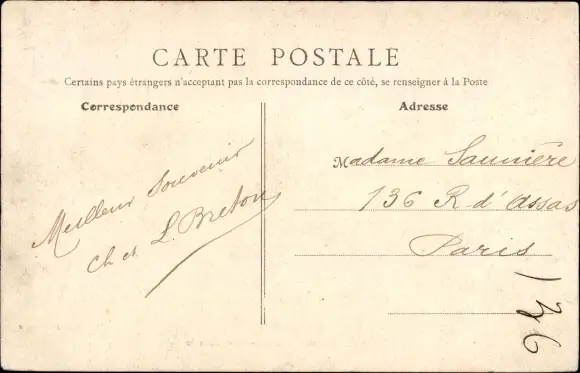 CARTE POSTALE
Certains pays étrangers n'acceptant pas la correspondance de ce côté, se renseigner à la Poste
Correspondance
Adresse
Meilleur Souvenir
Ch et L. Breton
Madame Saunière
136 R d'Assas
Paris